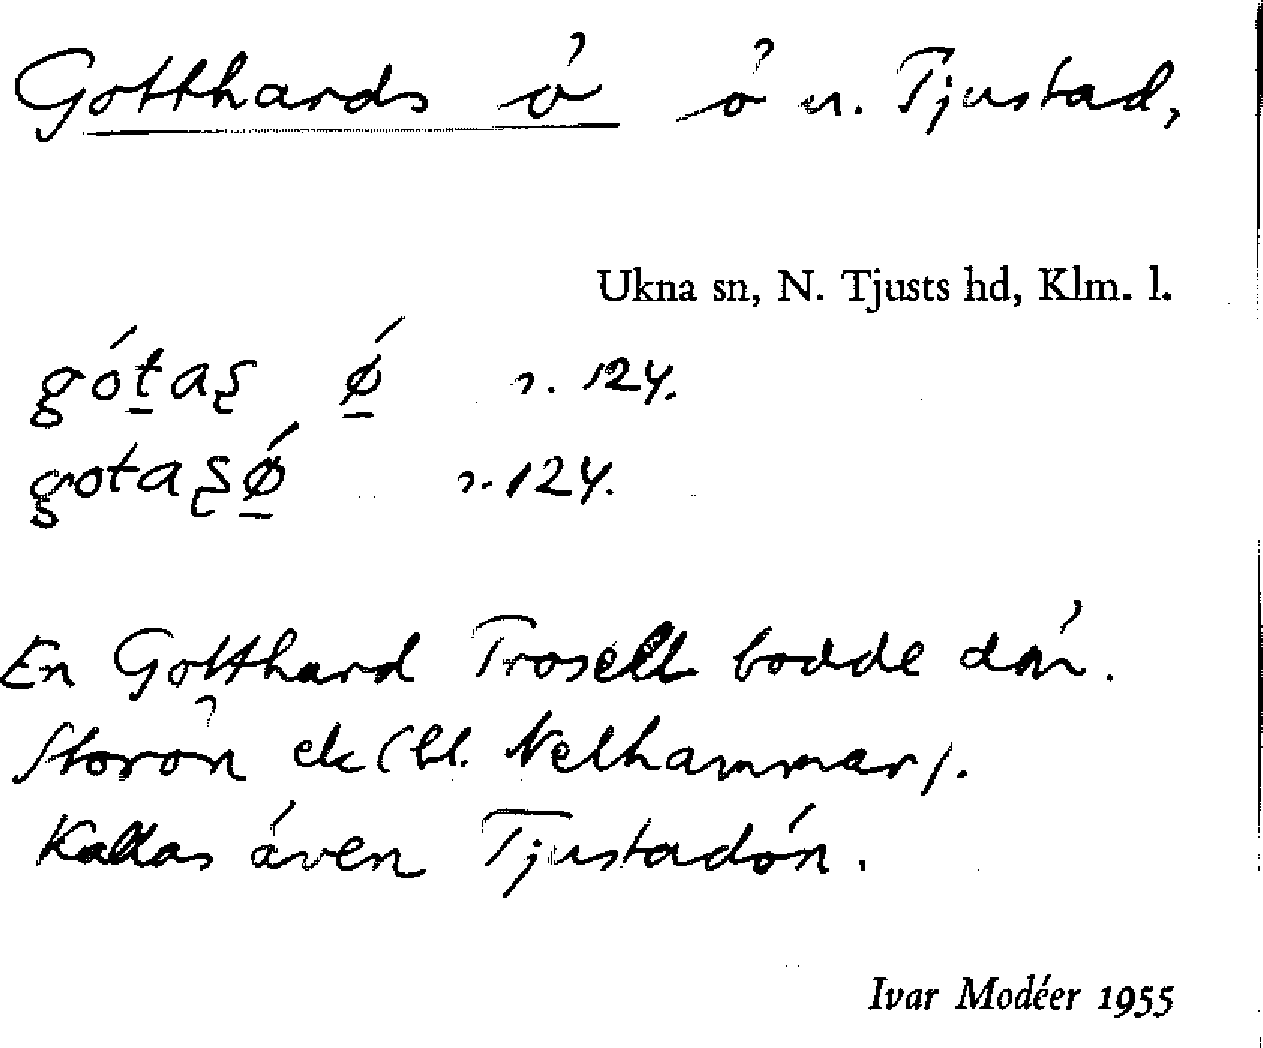 Gotthards ö ö u. Tjustad,
Ukna sn, N. Tjusts hd, Klm. l.
gótaʂ ǿ r. 124.
gotaʂǿ r. 124.
En Gotthard Trosell bodde där.
Storön ek (bl. Nelhammar).
Kallas även Tjustadön.
Ivar Modéer 1955